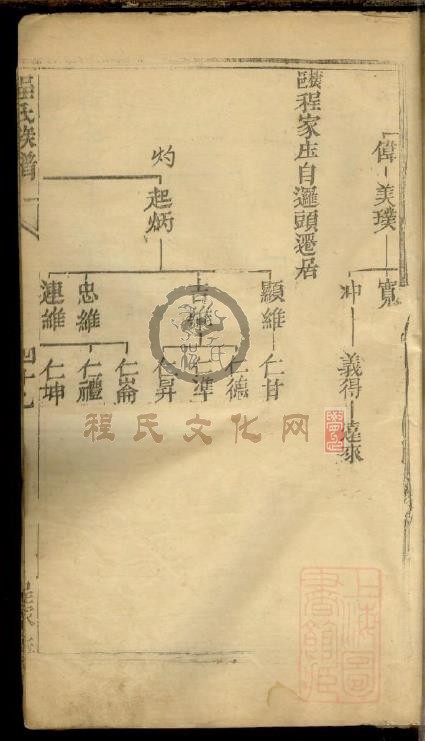 偉 美璞
寬
冲 義得 遠來
程家庄自邏頭遷居
灼
起炳
顯維 仁甘
吉維 仁德
仁準
仁昇
忠維 仁崙
仁禮
連維 仁坤
程氏族譜
程氏文化网
上海圖書館藏